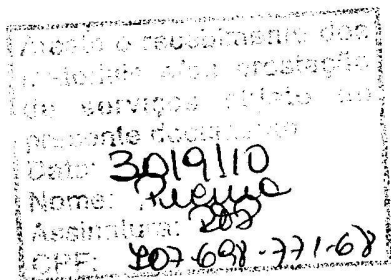 Atesto o recebimento dos
materiais e/ou prestação
de serviços objeto do
presente documento
Data: 30/9/10
Nome:
Assinatura:
CPF: 707-698-771-68